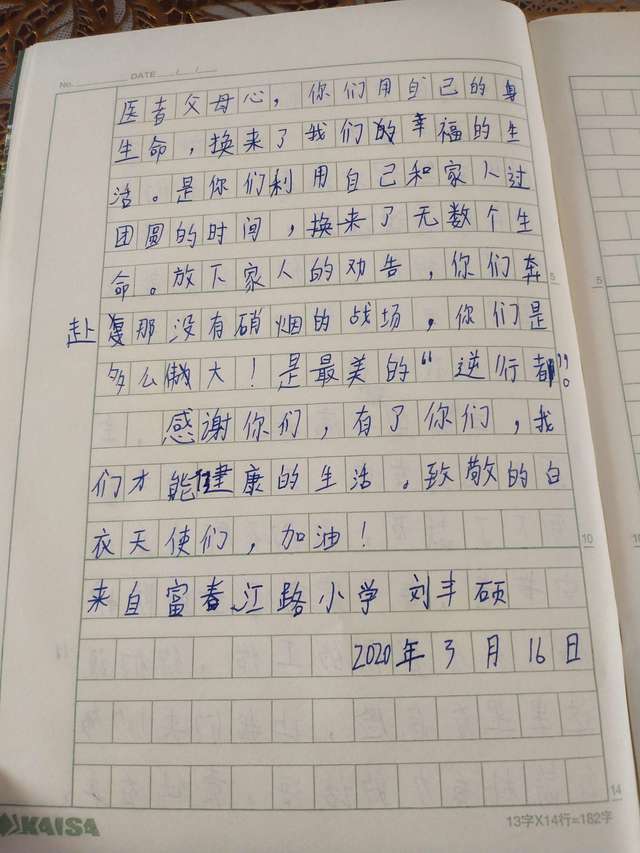 No. DATE / /
医者父母心，你们用自己的身
生命，换来了我们的幸福的生
活。是你们利用自己和家人过
团圆的时间，换来了无数个生
命。放下家人的劝告，你们奔
赴复那没有硝烟的战场，你们是
多么伟大！是最美的“逆行者”。
感谢你们，有了你们，我
们才能健康的生活。致敬的白
衣天使们，加油！
来自富春江路小学 刘丰硕
2020年3月16日
5
5
10
10
14
KAISA
13字X14行=182字